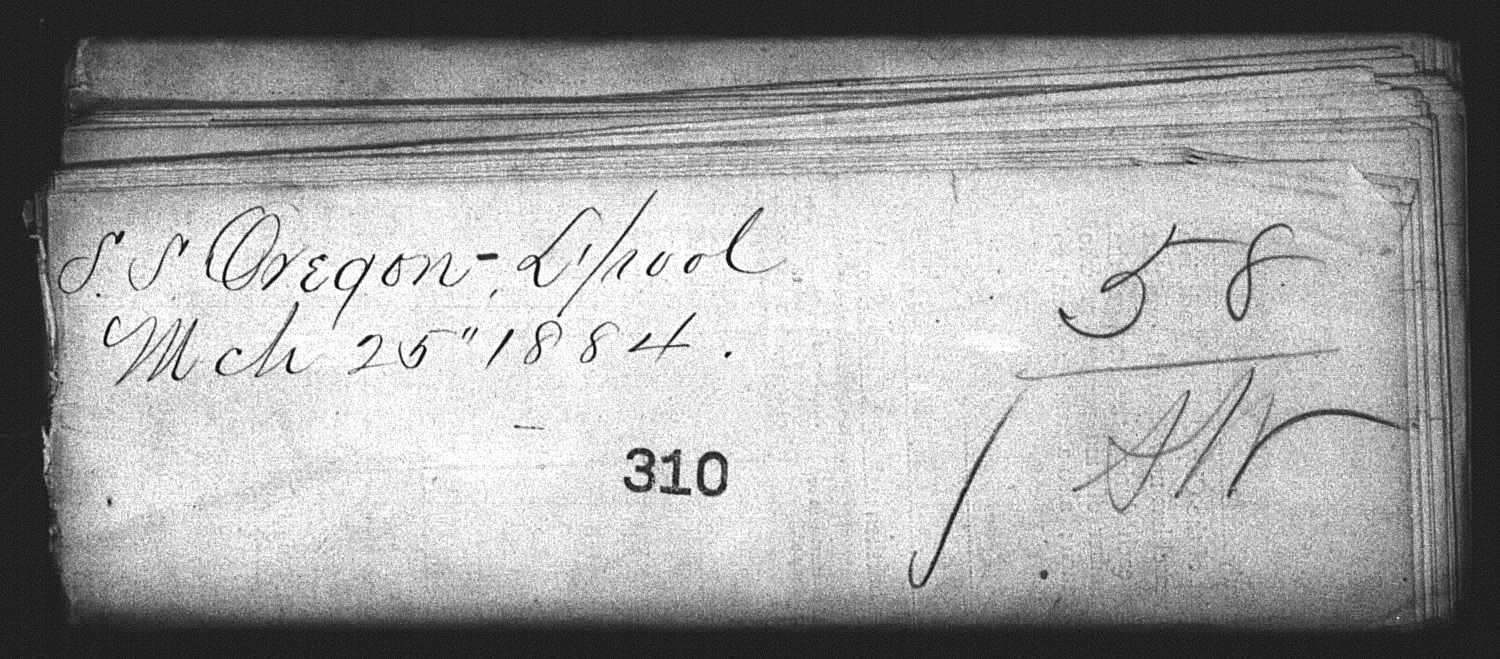 S. S. Oregon - L'pool
Mch 25" 1884.
58
310